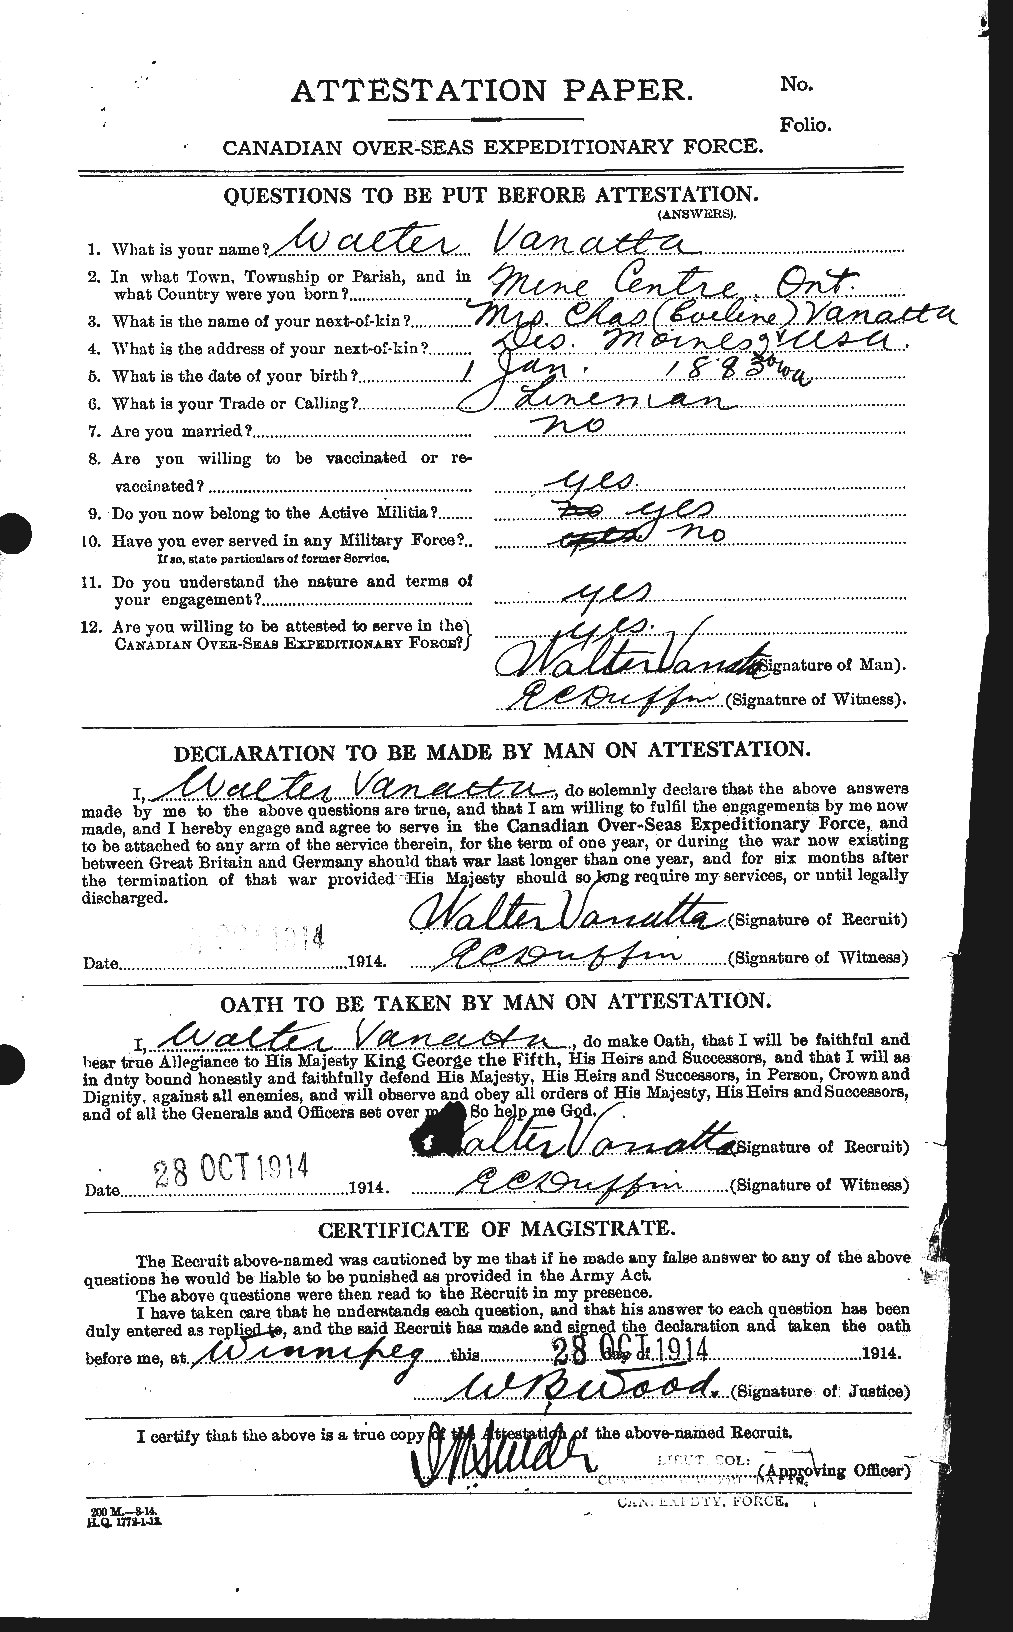 ATTESTATION PAPER.
No.
Folio.
CANADIAN OVER-SEAS EXPEDITIONARY FORCE.
QUESTIONS TO BE PUT BEFORE ATTESTATION.
(ANSWERS).
1. What is your name? Walter Vanatta
2. In what Town, Township or Parish, and in
what Country were you born? Mine Centre. Ont.
3. What is the name of your next-of-kin? Mrs Chas (Eveline) Vanatta
4. What is the address of your next-of-kin? Des. Moines USA.
Iowa
5. What is the date of your birth? 1 Jan. 1883
6. What is your Trade or Calling? Lineman
7. Are you married? no
8. Are you willing to be vaccinated or re-
vaccinated? yes.
9. Do you now belong to the Active Militia? no yes
10. Have you ever served in any Military Force? yes no
If so, state particulars of former Service.
11. Do you understand the nature and terms of
your engagement? yes
12. Are you willing to be attested to serve in the
CANADIAN OVER-SEAS EXPEDITIONARY FORCE? yes.
Walter Vanatta (Signature of Man).
E C Duffin (Signature of Witness).
DECLARATION TO BE MADE BY MAN ON ATTESTATION.
I, Walter Vanatta, do solemnly declare that the above answers
made by me to the above questions are true, and that I am willing to fulfil the engagements by me now
made, and I hereby engage and agree to serve in the Canadian Over-Seas Expeditionary Force, and
to be attached to any arm of the service therein, for the term of one year, or during the war now existing
between Great Britain and Germany should that war last longer than one year, and for six months after
the termination of that war provided His Majesty should so long require my services, or until legally
discharged.
Walter Vanatta (Signature of Recruit)
1914
Date 1914. E C Duffin (Signature of Witness)
OATH TO BE TAKEN BY MAN ON ATTESTATION.
I, Walter Vanatta, do make Oath, that I will be faithful and
bear true Allegiance to His Majesty King George the Fifth, His Heirs and Successors, and that I will as
in duty bound honestly and faithfully defend His Majesty, His Heirs and Successors, in Person, Crown and
Dignity, against all enemies, and will observe and obey all orders of His Majesty, His Heirs and Successors,
and of all the Generals and Officers set over me. So help me God.
Walter Vanatta (Signature of Recruit)
28 OCT 1914
Date 1914. E C Duffin (Signature of Witness)
CERTIFICATE OF MAGISTRATE.
The Recruit above-named was cautioned by me that if he made any false answer to any of the above
questions he would be liable to be punished as provided in the Army Act.
The above questions were then read to the Recruit in my presence.
I have taken care that he understands each question, and that his answer to each question has been
duly entered as replied to, and the said Recruit has made and signed the declaration and taken the oath
before me, at Winnipeg this 28 OCT 1914 day of 1914.
W B Wood. (Signature of Justice)
I certify that the above is a true copy of the Attestation of the above-named Recruit.
LIEUT. COL:
(Approving Officer)
CAN. EXP'DTY. FORCE.
200 M.—8-14.
H.Q. 1772-1-13.